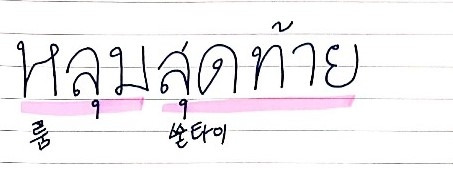 หลุมสุดท้าย
룸 쑫타이